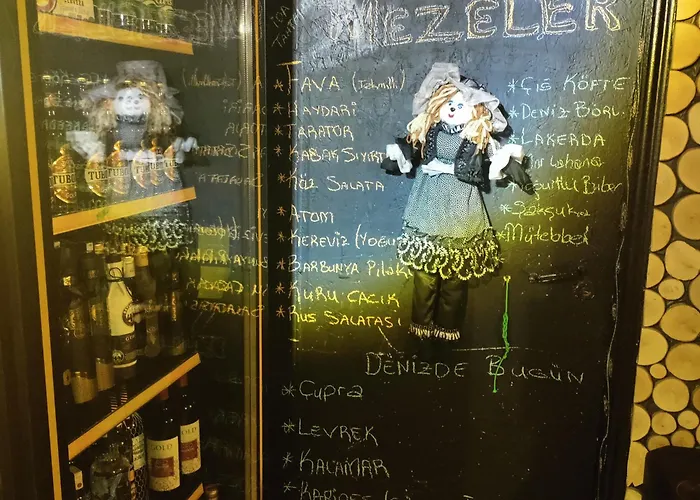 MEZELER
* FAVA (Tahinli)
* HAYDARİ
* TARATOR
* KABAK SIYIRT
* KÖZ SALATA
* ATOM
* KEREVİZ (YOĞU
* BARBUNYA PİLAKİ
* KURU CACIK
* RUS SALATASI
* ÇİĞ KÖFTE
* DENİZ BÖRÜ
* LAKERDA
Lahana
Biber
* Şakşuka
* Mütebbel
DENİZDE BUGÜN
* Çupra
* LEVREK
* KALAMAR
* KARİDES
TUBORG
GOLD